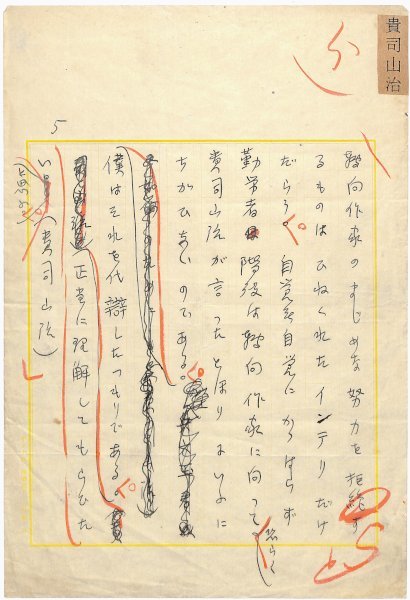 貴司山治
5
轉向作家のまじめな努力を拒絶す
るものはひねくれたインテリだけ
だらう。自覚無自覚にかゝはらず
勤労者階級は轉向作家に向って恐らく
貴司山治が言ったとほりにいふに
ちがひないのである。
僕はそれを代辯したつもりである。
正当に理解してもらひた
いと思ふ。(貴司山治)